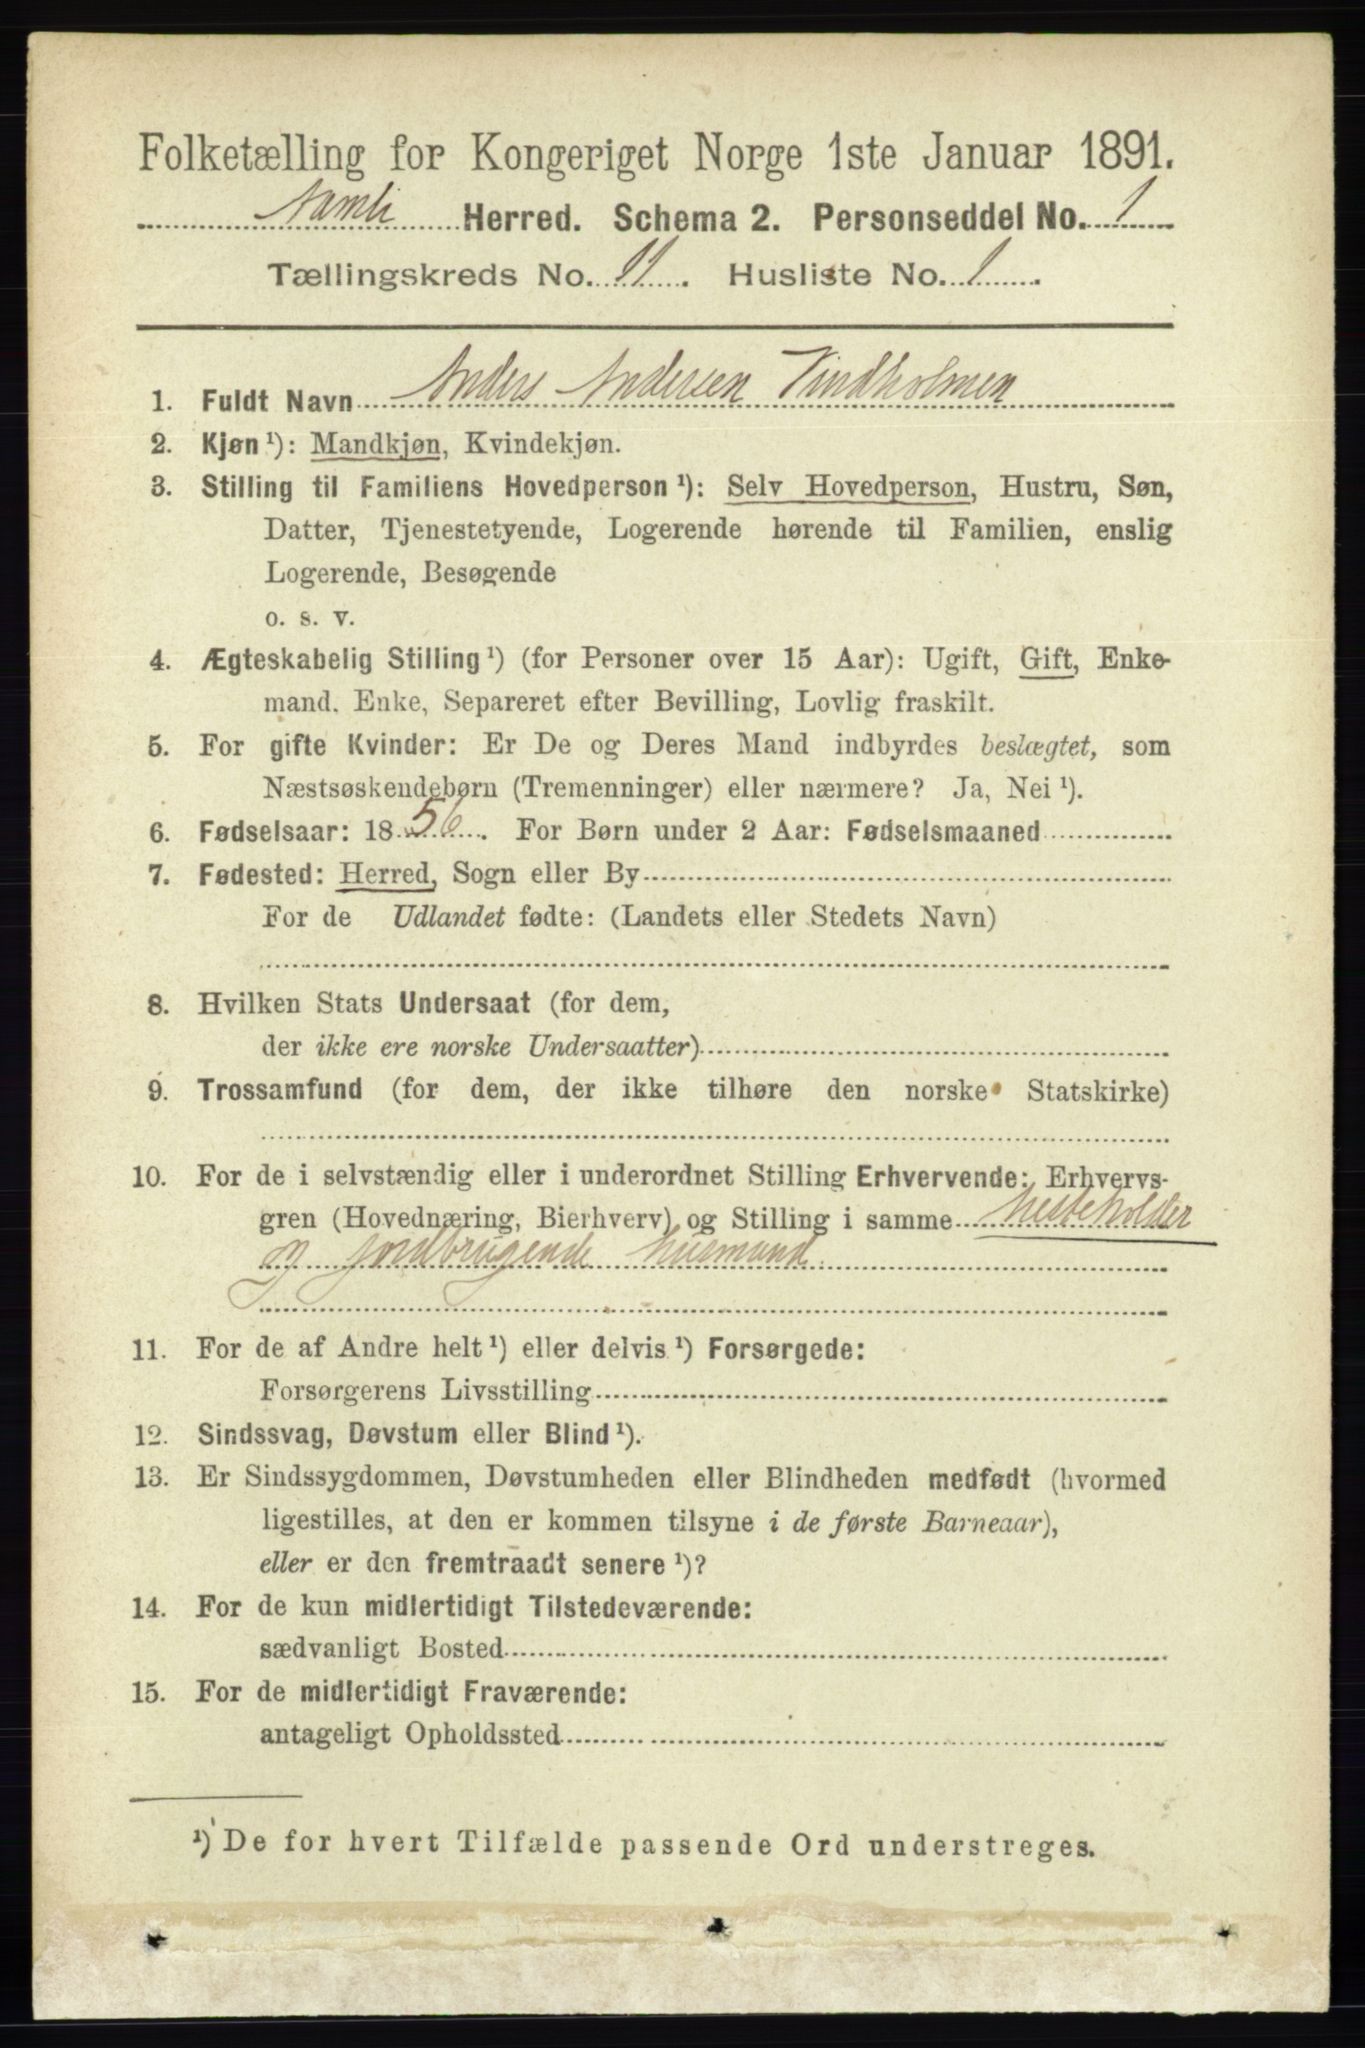 Folketælling for Kongeriget Norge 1ste Januar 1891.
Aamli Herred. Schema 2. Personseddel No. 1
Tællingskreds No. 11. Husliste No. 1.
1. Fuldt Navn Anders Andersen Vindholmen
2. Kjøn ¹): Mandkjøn, Kvindekjøn.
3. Stilling til Familiens Hovedperson ¹): Selv Hovedperson, Hustru, Søn,
Datter, Tjenestetyende, Logerende hørende til Familien, enslig
Logerende, Besøgende
o. s. v.
4. Ægteskabelig Stilling ¹) (for Personer over 15 Aar): Ugift, Gift, Enke-
mand, Enke, Separeret efter Bevilling, Lovlig fraskilt.
5. For gifte Kvinder: Er De og Deres Mand indbyrdes beslægtet, som
Næstsøskendebørn (Tremenninger) eller nærmere? Ja, Nei ¹).
6. Fødselsaar: 1856. For Børn under 2 Aar: Fødselsmaaned
7. Fødested: Herred, Sogn eller By
For de Udlandet fødte: (Landets eller Stedets Navn)
8. Hvilken Stats Undersaat (for dem,
der ikke ere norske Undersaatter)
9. Trossamfund (for dem, der ikke tilhøre den norske Statskirke)
10. For de i selvstændig eller i underordnet Stilling Erhvervende: Erhvervs-
gren (Hovednæring, Bierhverv) og Stilling i samme Hesteholder
og jordbrugende husmand
11. For de af Andre helt ¹) eller delvis ¹) Forsørgede:
Forsørgerens Livsstilling
12. Sindssvag, Døvstum eller Blind ¹).
13. Er Sindssygdommen, Døvstumheden eller Blindheden medfødt (hvormed
ligestilles, at den er kommen tilsyne i de første Barneaar),
eller er den fremtraadt senere ¹)?
14. For de kun midlertidigt Tilstedeværende:
sædvanligt Bosted
15. For de midlertidigt Fraværende:
antageligt Opholdssted
¹) De for hvert Tilfælde passende Ord understreges.